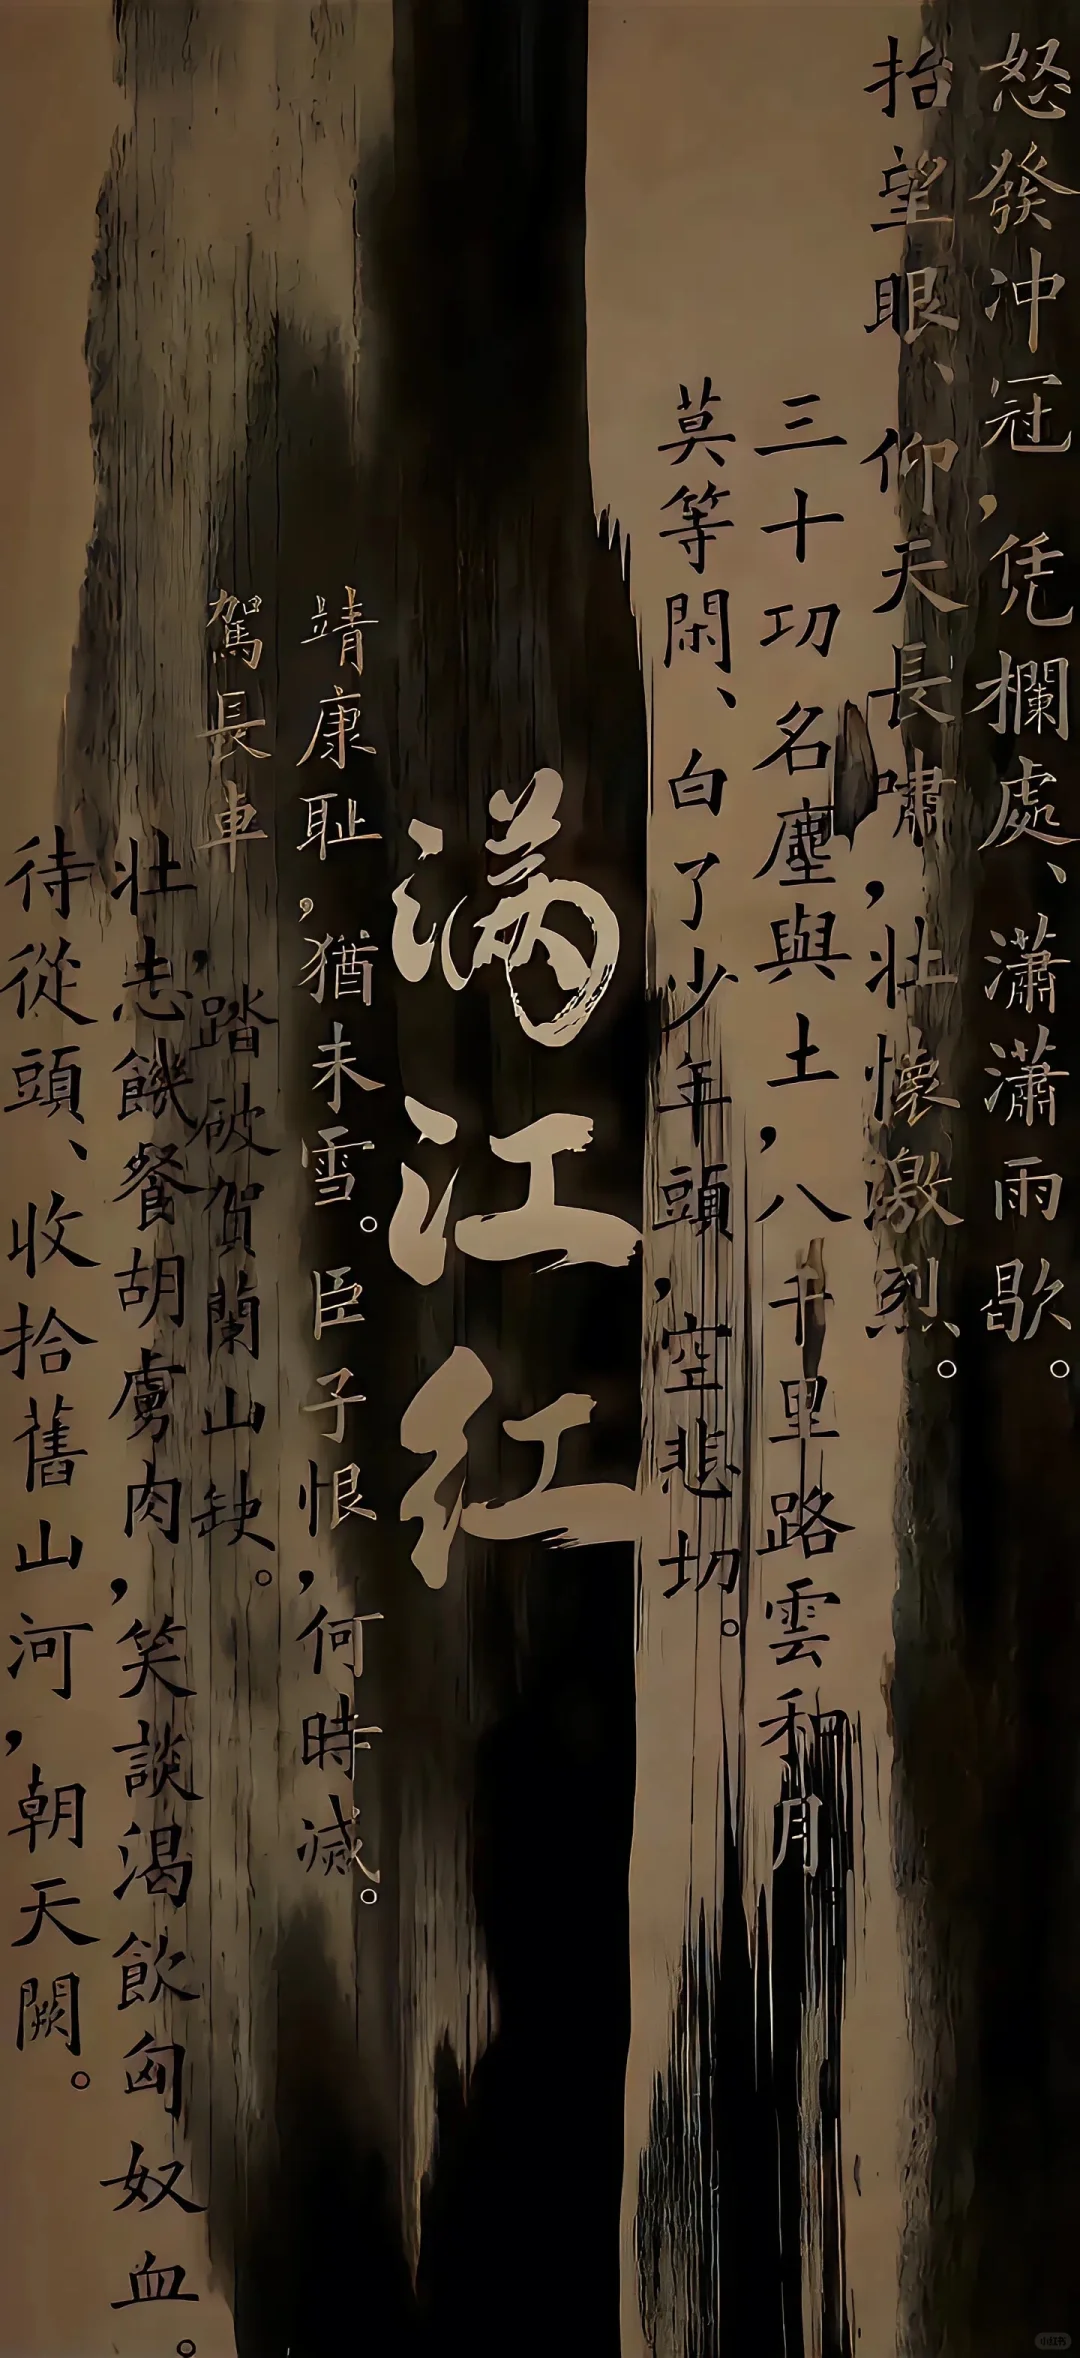 怒發冲冠,凭欄處、瀟瀟雨歇。
抬望眼、仰天長嘯,壯懷激烈。
三十功名塵與土,八千里路雲和月。
莫等閑、白了少年頭,空悲切。
满江红
靖康耻,猶未雪。臣子恨,何時滅。
駕長車,踏破賀蘭山缺。
壯志饑餐胡虜肉,笑談渴飲匈奴血。
待從頭、收拾舊山河,朝天闕。
小红书